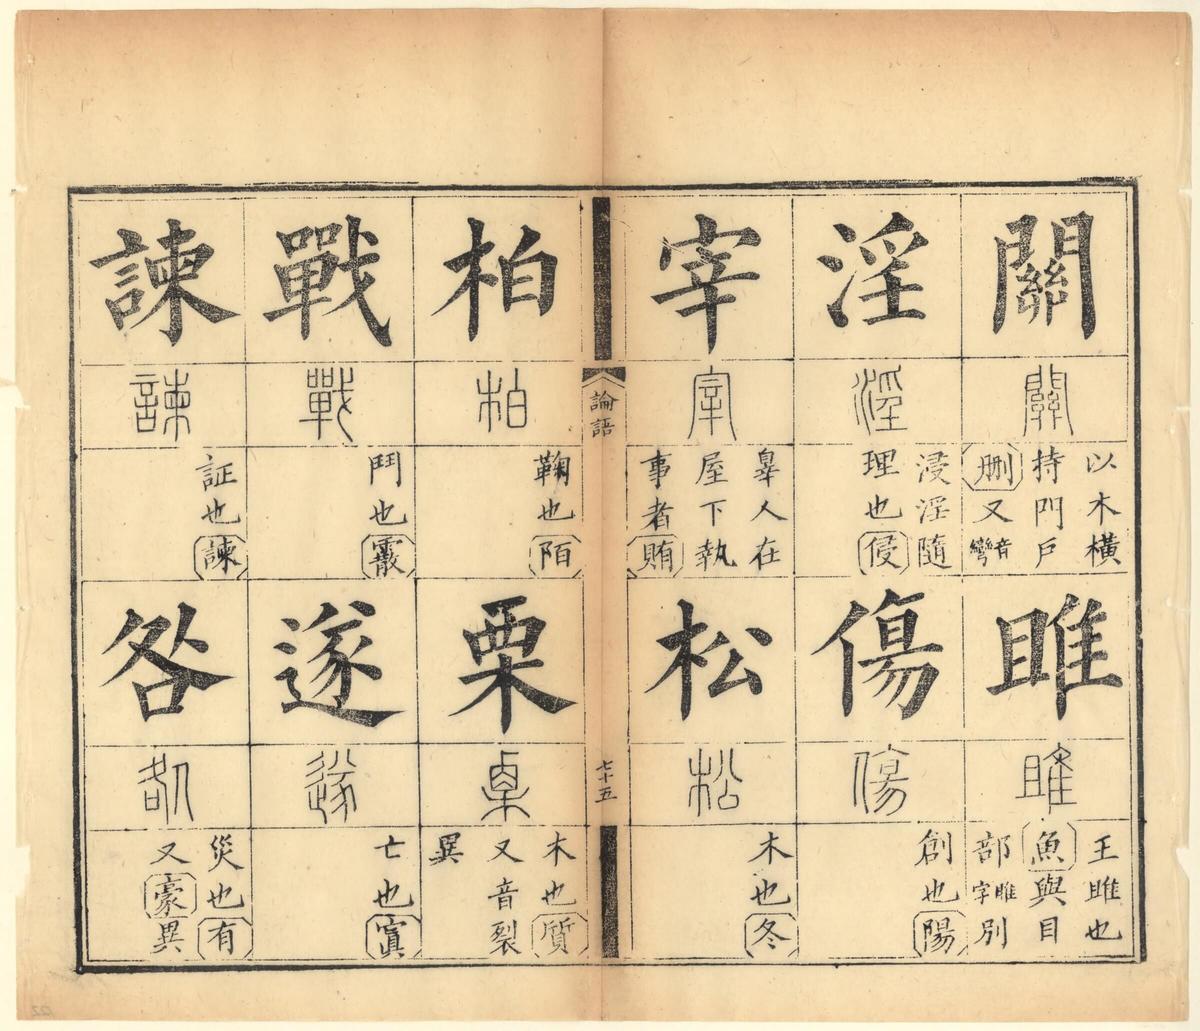 關
關
以木橫
持門戶
刪又音彎
雎
雎
王雎也
魚與目
部睢字別
淫
淫
浸淫隨
理也侵
傷
傷
創也陽
宰
宰
辠人在
屋下執
事者賄
松
松
木也冬
論語
七十五
柏
柏
鞠也陌
栗
栗
木也質
又音裂
異
戰
戰
鬥也霰
遂
遂
亡也寘
諫
諫
証也諫
咎
咎
災也有
又豪異